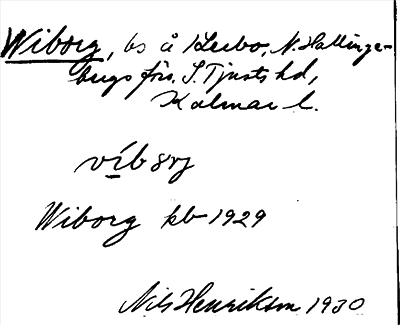 Wiborg, bs å Kleebo, N. Hallinge-
bergs förs. S. Tjusts hd,
Kalmar l.
víbȣrj
Wiborg kb 1929
Nils Henrikson 1930